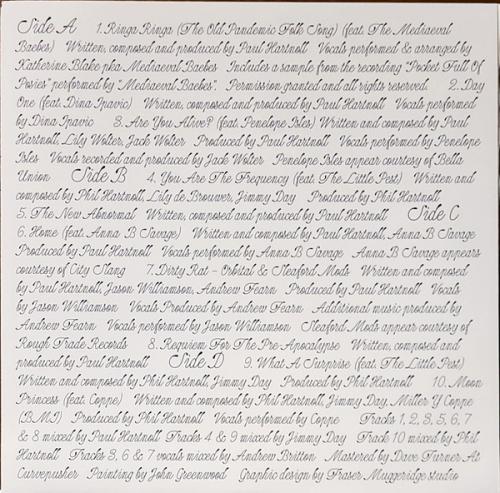 Side A 1. Ringa Ringa (The Old Pandemic Folk Song) (feat. The Mediaeval
Baebes) Written, composed and produced by Paul Hartnoll Vocals performed & arranged by
Katherine Blake pka Mediaeval Baebes Includes a sample from the recording "Pocket Full Of
Posies" performed by "Mediaeval Baebes". Permission granted and all rights reserved. 2. Day
One (feat. Dina Ipavic) Written, composed and produced by Paul Hartnoll Vocals performed
by Dina Ipavic 3. Are You Alive? (feat. Penelope Isles) Written and composed by Paul
Hartnoll, Lily Wolter, Jack Wolter Produced by Paul Hartnoll Vocals performed by Penelope
Isles Vocals recorded and produced by Jack Wolter Penelope Isles appear courtesy of Bella
Union Side B 4. You Are The Frequency (feat. The Little Pest) Written and
composed by Phil Hartnoll, Lily de Brouwer, Jimmy Day Produced by Phil Hartnoll
5. The New Abnormal Written, composed and produced by Paul Hartnoll Side C
6. Home (feat. Anna B Savage) Written and composed by Paul Hartnoll, Anna B Savage
Produced by Paul Hartnoll Vocals performed by Anna B Savage Anna B Savage appears
courtesy of City Slang 7. Dirty Rat - Orbital & Sleaford Mods Written and composed
by Paul Hartnoll, Jason Williamson, Andrew Fearn Produced by Paul Hartnoll Vocals
by Jason Williamson Vocals Produced by Andrew Fearn Additional music produced by
Andrew Fearn Vocals performed by Jason Williamson Sleaford Mods appear courtesy of
Rough Trade Records 8. Requiem For The Pre Apocalypse Written, composed and
produced by Paul Hartnoll Side D 9. What A Surprise (feat. The Little Pest)
Written and composed by Phil Hartnoll, Jimmy Day Produced by Phil Hartnoll 10. Moon
Princess (feat. Coppe) Written and composed by Phil Hartnoll, Jimmy Day, Miller Y Coppe
(BMI) Produced by Phil Hartnoll Vocals performed by Coppe Tracks 1, 2, 3, 5, 6, 7
& 8 mixed by Paul Hartnoll Tracks 4 & 9 mixed by Jimmy Day Track 10 mixed by Phil
Hartnoll Tracks 3, 6 & 7 vocals mixed by Andrew Britton Mastered by Dave Turner At
Curvepusher Painting by John Greenwood Graphic design by Fraser Muggeridge studio